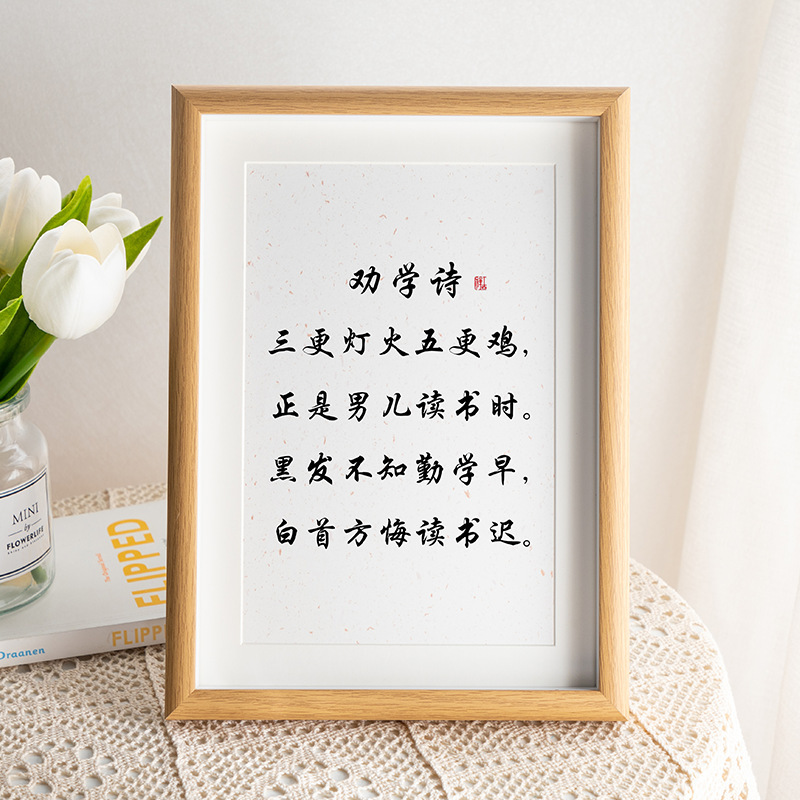 劝学诗
三更灯火五更鸡，
正是男儿读书时。
黑发不知勤学早，
白首方悔读书迟。
MINI
by
FLOWERLIFE
FLIPPED
FLIPP
Draanen